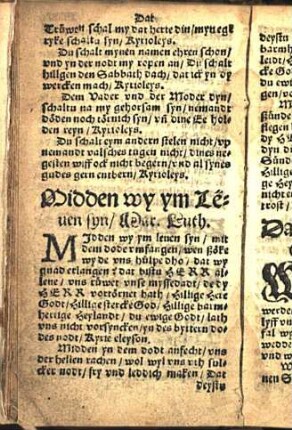 Dat
Trüwen schal my dat herte din/ myn egt
ryke schaltu syn/ Kyrioleys.
Du schalt mynen namen ehren schon/
vnd yn der nodt my ropen an/ Du schalt
hilgen den Sabbath dach/ dat ick yn dy
wercken mach/ Kyrioleys.
Dem Vader vnd der Moder dyn/
schaltu na my gehorsam syn/ nemandt
döden noch törnich syn/ vñ dine Ee hol
den reyn/ Kyrioleys.
Du schalt eym andern stelen nicht/ vp
nemandt valsches tügen nicht/ dines ne
gesten wiff ock nicht begern/ vnd al synes
gudes gern entbern/ Kyrioleys.
Midden wy ym Lē-
uen syn/ Mar. Luth.
MIdden wy ym leuen syn/ mit
dem dode vmfangen/ wen söke
wy de vns hülpe dho/ dat wy
gnad erlangen? dat bistu HERR al
lene/ vns rüwet vnse myssedadt/ de dy
HERR vortörnet hath/ Hillige Here
Godt/ Hillige stercke God/ Hillige barm
hertige Heylandt/ du ewige Godt/ lath
vns nicht vorsyncken/ yn des bittern do
des nodt/ Kyrie eleyson.
Midden yn dem dodt anfecht/ vns
der hellen rachen/ wol wyl vns vth sul
cker nodt/ fry vnd leddich maken/ Dat
deystu